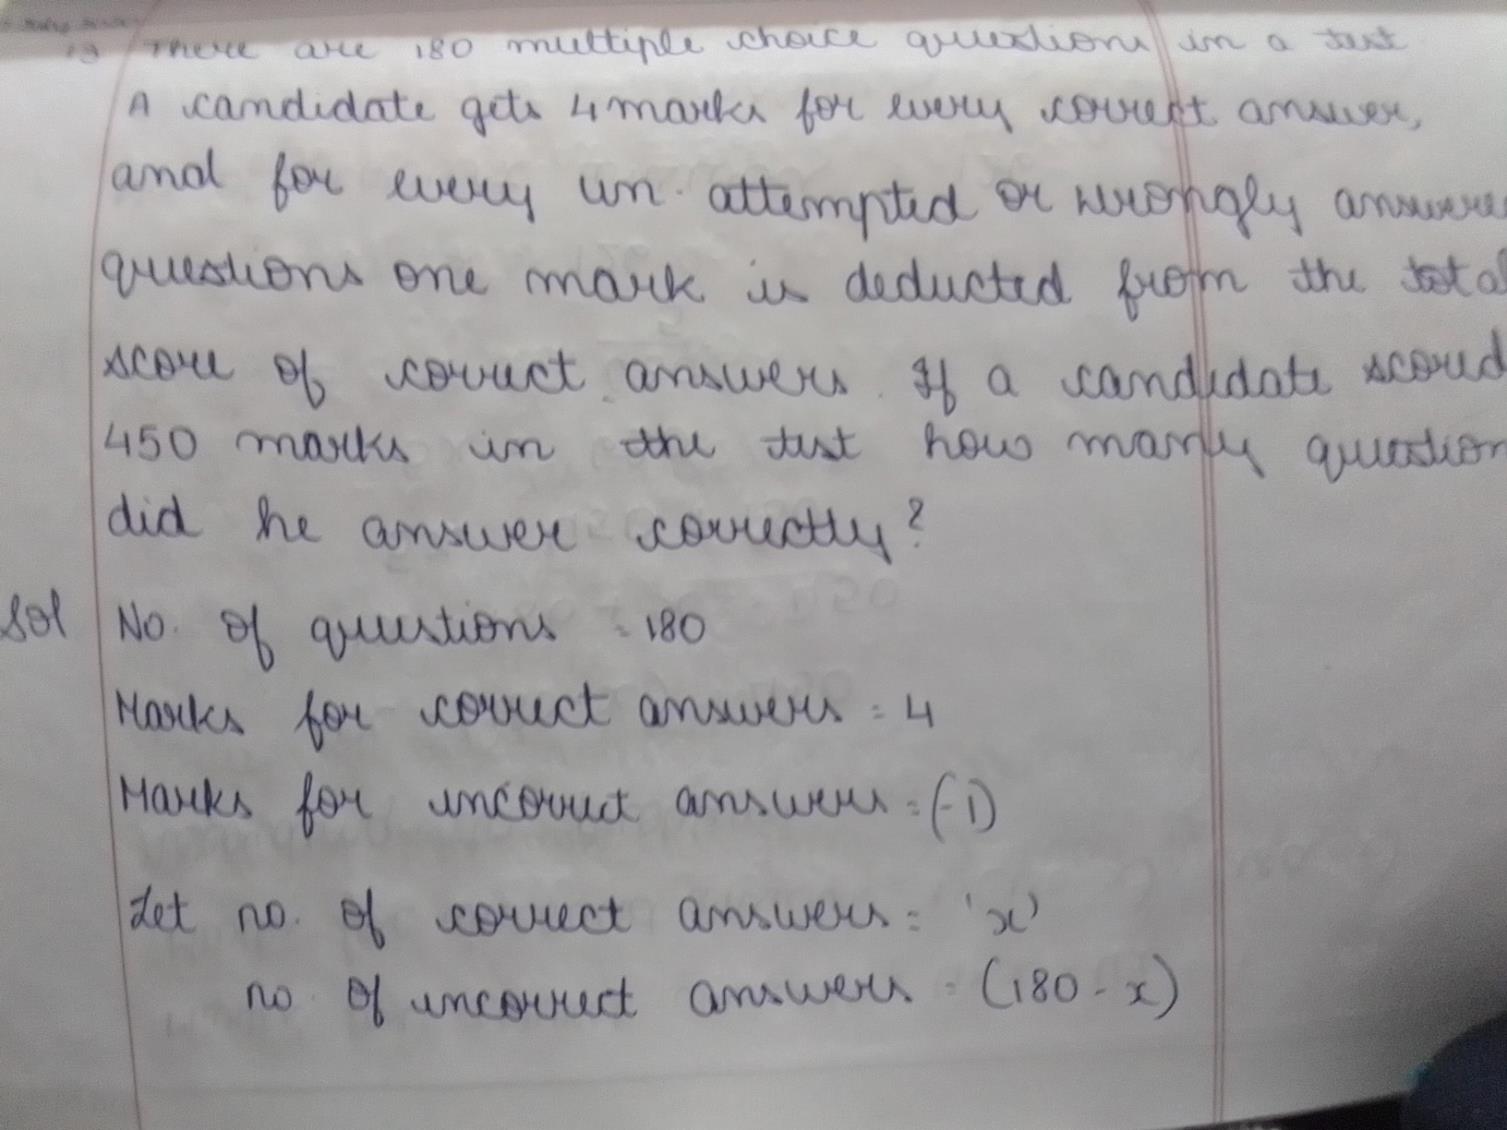 There are 180 multiple choice questions in a test
A candidate gets 4 marks for every correct answer,
and for every un-attempted or wrongly answere
questions one mark is deducted from the total
score of correct answers. If a candidate scored
450 marks in the test how many question
did he answer correctly?
Sol No. of questions = 180
Marks for correct answers = 4
Marks for incorrect answers = (-1)
Let no. of correct answers = 'x'
no. of incorrect answers = (180 - x)